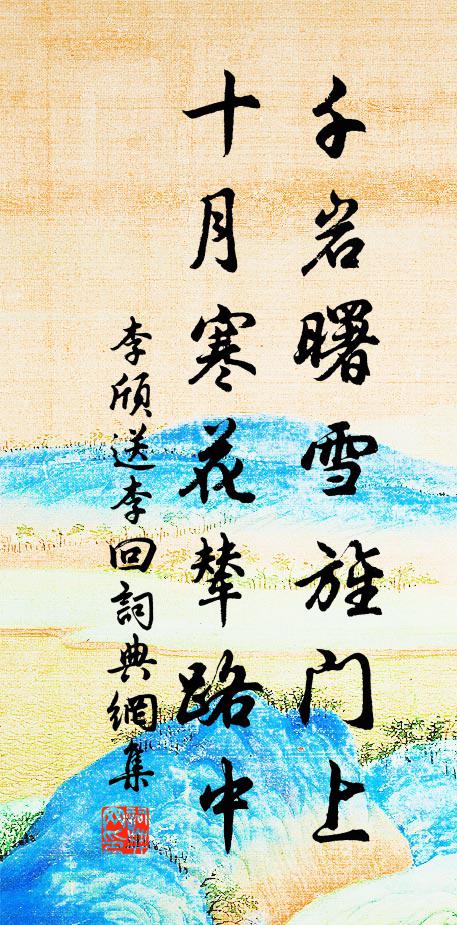 千岩曙雪旌门上
十月寒花辇路中
李颀送李回詞典網集